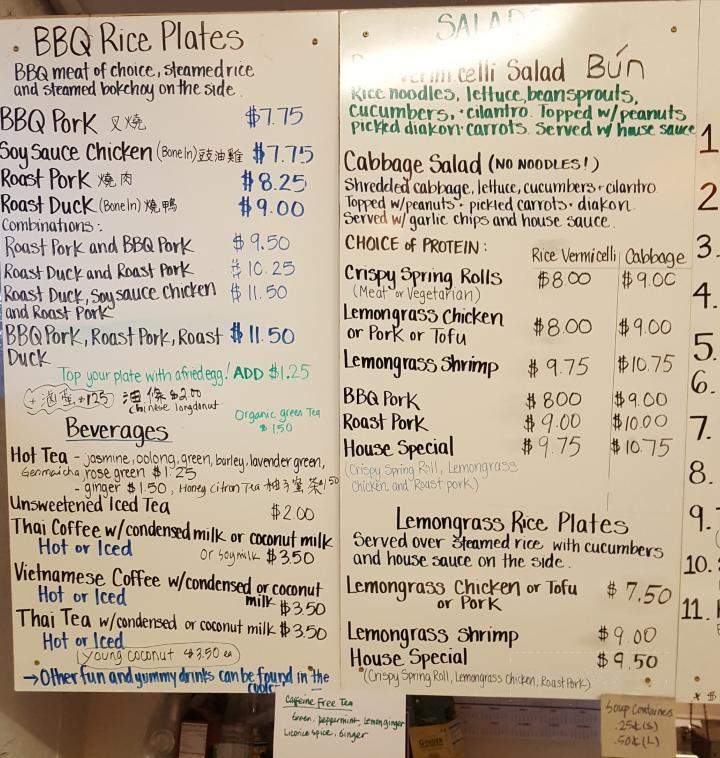 BBQ Rice Plates
BBQ meat of choice, steamed rice
and steamed bokchoy on the side.
BBQ Pork 叉燒 $7.75
Soy Sauce Chicken (Bone In) 豉油雞 $7.75
Roast Pork 燒肉 $8.25
Roast Duck (Bone In) 燒鴨 $9.00
Combinations:
Roast Pork and BBQ Pork $9.50
Roast Duck and Roast Pork $10.25
Roast Duck, Soy sauce chicken $11.50
and Roast Pork
BBQ Pork, Roast Pork, Roast $11.50
Duck
Top your plate with a fried egg! ADD $1.25
+ 滷蛋 +1.25 油條 $2.00
Chinese long donut
Organic green Tea
$1.50
Beverages
Hot Tea - jasmine, oolong, green, barley, lavender green,
Genmaicha, rose green $1.25
- ginger $1.50, Honey Citron Tea 柚子蜜茶 $1.50
Unsweetened Iced Tea $2.00
Thai Coffee w/condensed milk or coconut milk
Hot or Iced or soymilk $3.50
Vietnamese Coffee w/condensed or coconut
Hot or Iced milk $3.50
Thai Tea w/condensed or coconut milk $3.50
Hot or Iced
Young coconut $3.50 ea
→ Other fun and yummy drinks can be found in the
cooler
SALAD
Vermicelli Salad Bún
Rice noodles, lettuce, beansprouts,
cucumbers, + cilantro. Topped w/peanuts
pickled diakon + carrots. Served w/ house sauce
Cabbage Salad (NO NOODLES!)
Shredded cabbage, lettuce, cucumbers + cilantro
Topped w/peanuts + pickled carrots + diakon.
Served w/ garlic chips and house sauce.
CHOICE OF PROTEIN: Rice Vermicelli | Cabbage
Crispy Spring Rolls $8.00 $9.00
(Meat or Vegetarian)
Lemongrass Chicken
or Pork or Tofu $8.00 $9.00
Lemongrass Shrimp $9.75 $10.75
BBQ Pork $8.00 $9.00
Roast Pork $9.00 $10.00
House Special $9.75 $10.75
(Crispy Spring Roll, Lemongrass
Chicken and Roast pork)
Lemongrass Rice Plates
Served over steamed rice with cucumbers
and house sauce on the side.
Lemongrass Chicken or Tofu $7.50
or Pork
Lemongrass Shrimp $9.00
House Special $9.50
(Crispy Spring Roll, Lemongrass Chicken, Roast Pork)
1
2
3.
4.
5.
6.
7.
8.
9.
10.
11.
Caffeine Free Tea
Green, Peppermint, Lemon ginger
Licorice spice, Ginger
Soup Containers
.25¢ (S)
.50¢ (L)